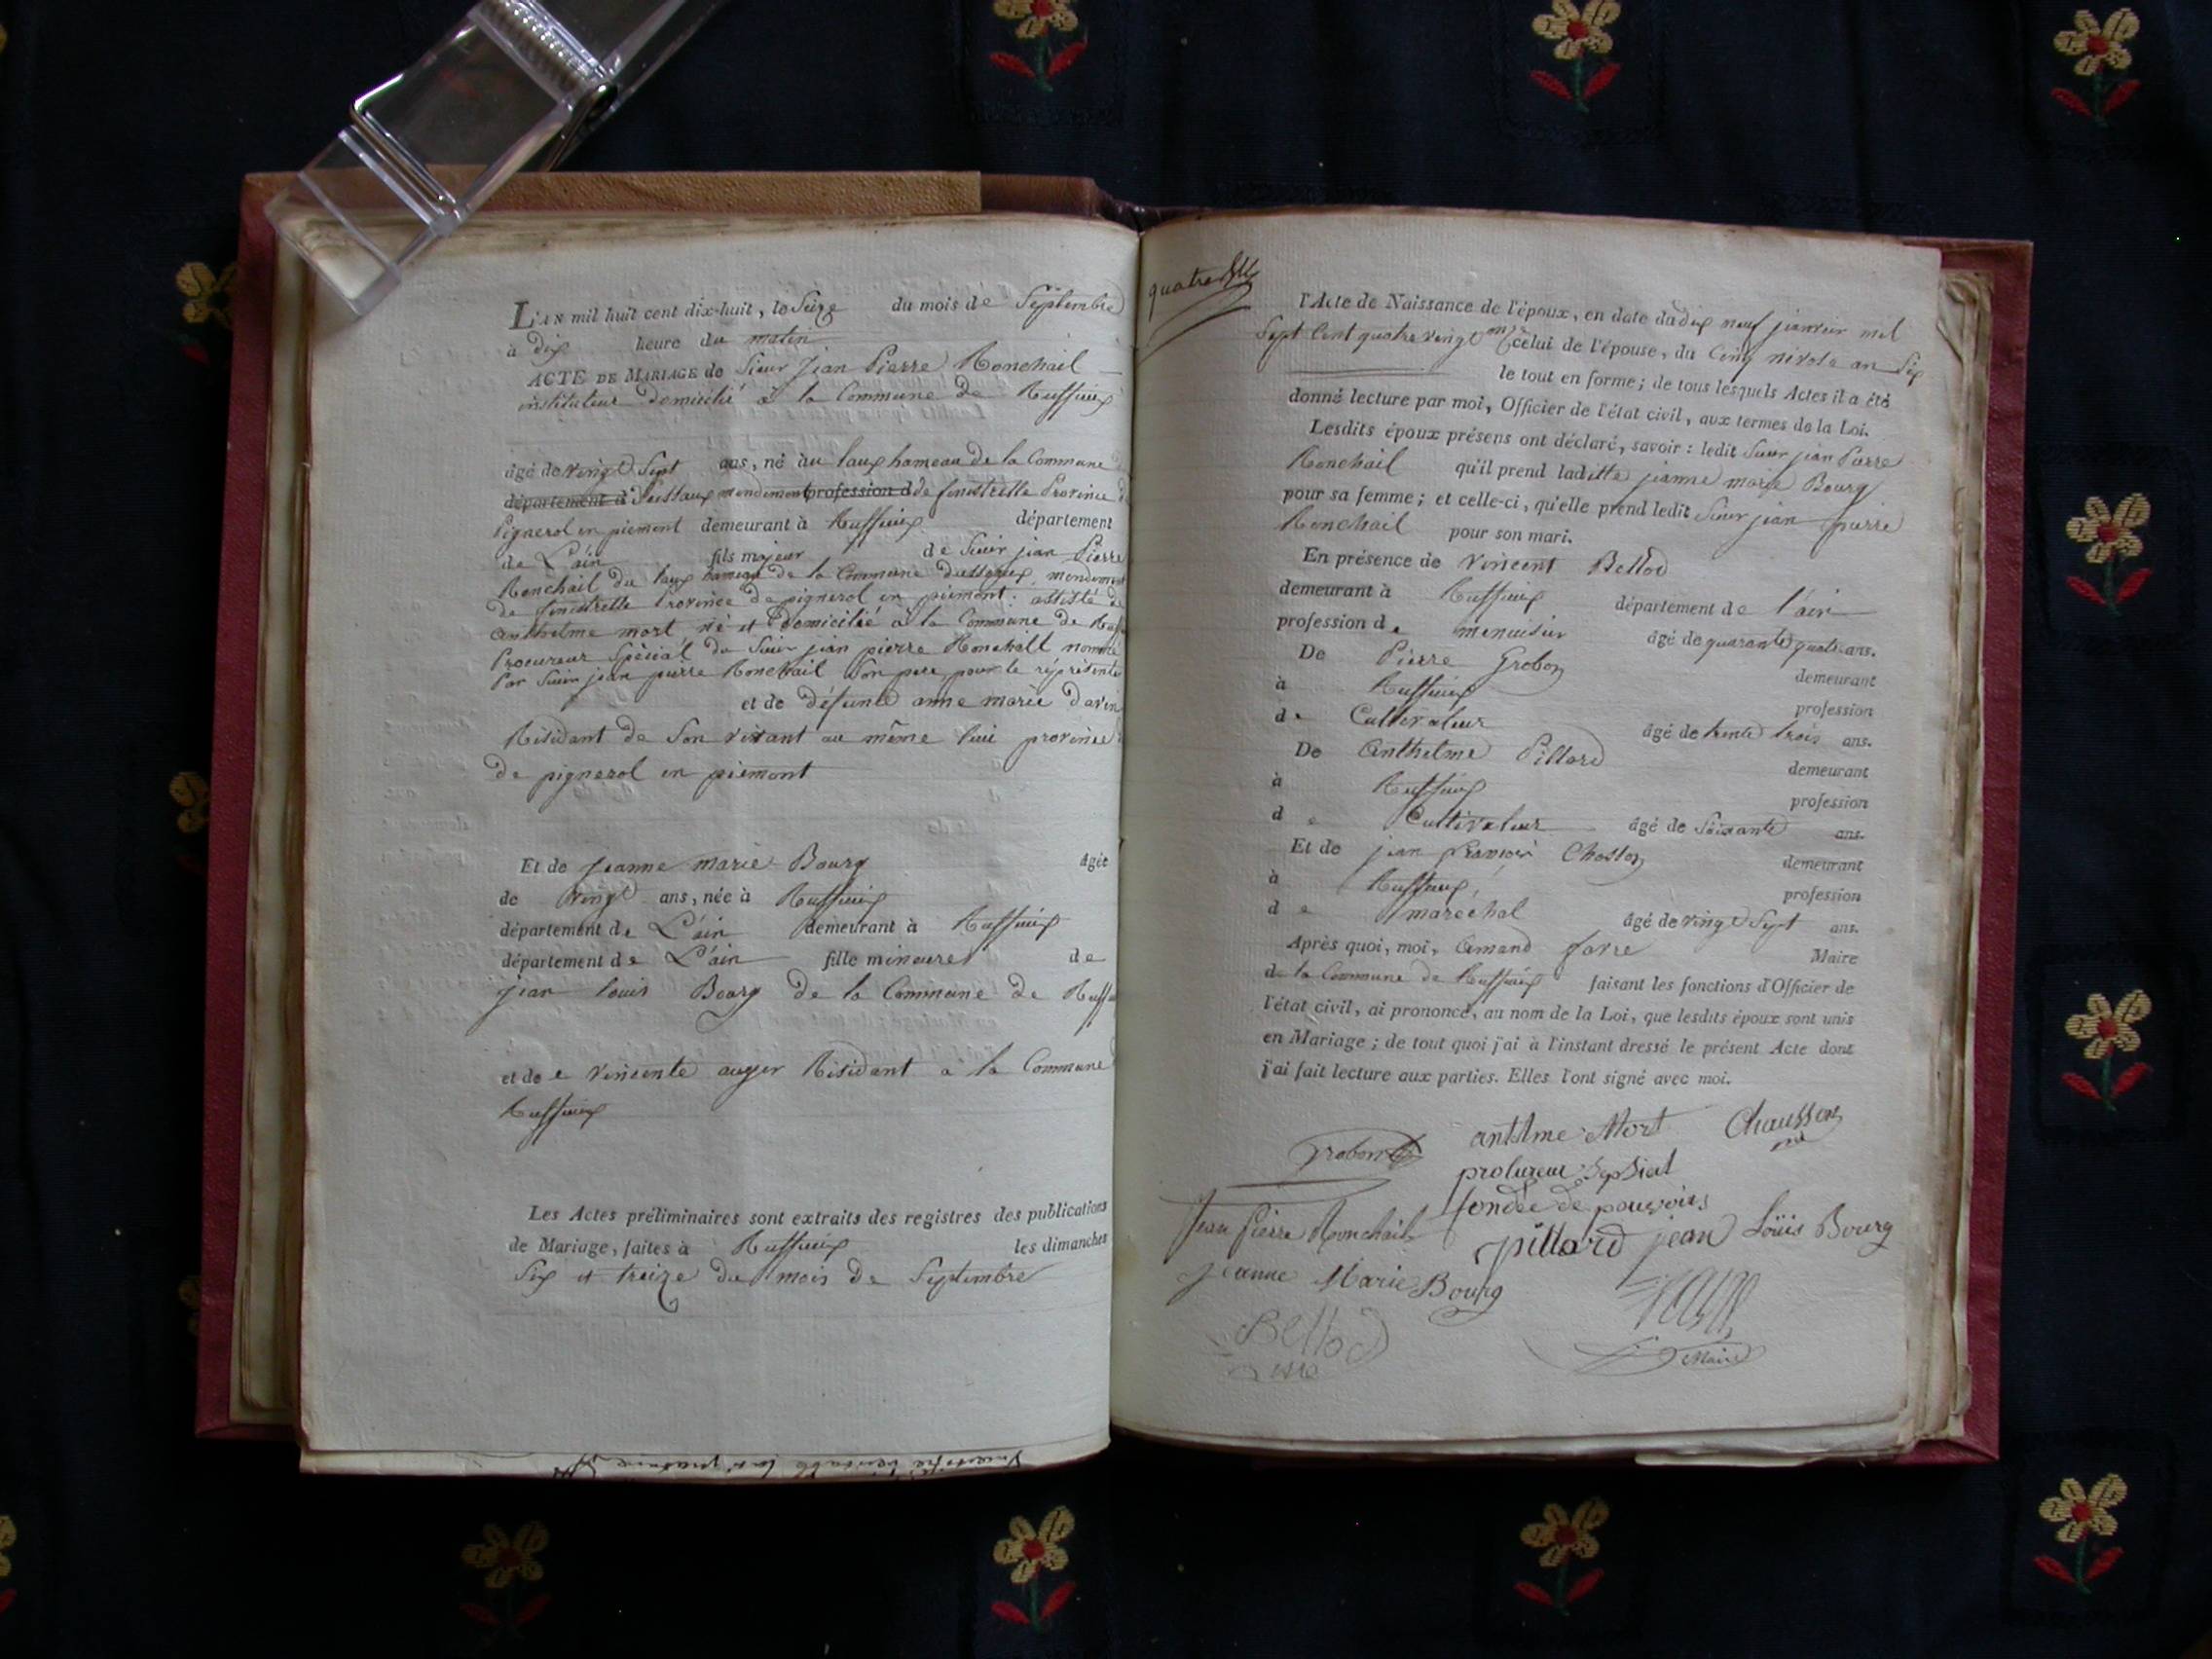 L'AN mil huit cent dix-huit, le Seize du mois de Septembre
à dix heure du matin
ACTE DE MARIAGE de Sieur Jean Pierre Ronchail
instituteur domicilié à la Commune de Ruffieux
âgé de vingt Sept ans, né au laux hameau de la Commune
département d mendement profession d de fenestrelle Province d
Pignerol en piemont demeurant à Ruffieux département
de L'ain fils majeur de Sieur jean Pierre
Ronchail du laux hameau de la Commune mendement
de fenestrelle Province de pignerol en piemont: assisté de
anthelme mort né et domicilié à la Commune de
Procureur Spécial du Sieur jean pierre Ronchaill nommé
Par Sieur jean pierre Ronchail Son pere pour le réprésenter
et de défunte anne marie
Résidant de Son vivant au même lieu province
de pignerol en piemont
Et de jeanne marie Bourg âgée
de vingt ans, née à Ruffieux
département de L'ain demeurant à Ruffieux
département de L'ain fille mineure de
jean louis Bourg de la Commune de
et de vincente auger Résidant a la Commune
Ruffieux
Les Actes préliminaires sont extraits des registres des publications
de Mariage, faites à Ruffieux les dimanches
Six et treize du mois de Septembre
l'Acte de Naissance de l'époux, en date du dix neuf janvier mil
Sept Cent quatre vingt onze celui de l'épouse, du Cinq nivose an Six
le tout en forme; de tous lesquels Actes il a été
donné lecture par moi, Officier de l'état civil, aux termes de la Loi.
Lesdits époux présens ont déclaré, savoir: ledit Sieur jean Pierre
Ronchail qu'il prend laditte jeanne marie Bourg
pour sa femme; et celle-ci, qu'elle prend ledit Sieur jean pierre
Ronchail pour son mari.
En présence de vincent Bellod
demeurant à Ruffieux département de l'ain
profession de menuisier âgé de quarante quatre ans.
De Pierre Grobon demeurant
à Ruffieux profession
de Cultivateur âgé de trente trois ans.
De Anthelme Pillard demeurant
à Ruffieux profession
de Cultivateur âgé de Soixante ans.
Et de jean François demeurant
à Ruffieux profession
de maréchal âgé de vingt Sept ans.
Après quoi, moi, Amand favre Maire
de la Commune de Ruffieux faisant les fonctions d'Officier de
l'état civil, ai prononcé, au nom de la Loi, que lesdits époux sont unis
en Mariage; de tout quoi j'ai à l'instant dressé le présent Acte dont
j'ai fait lecture aux parties. Elles l'ont signé avec moi.
Mort
Grobon
fondée de pouvoirs
Jean Pierre Ronchail
pillard jean Loüis Bourg
jeanne Marie Bourg
Bellod
Maire